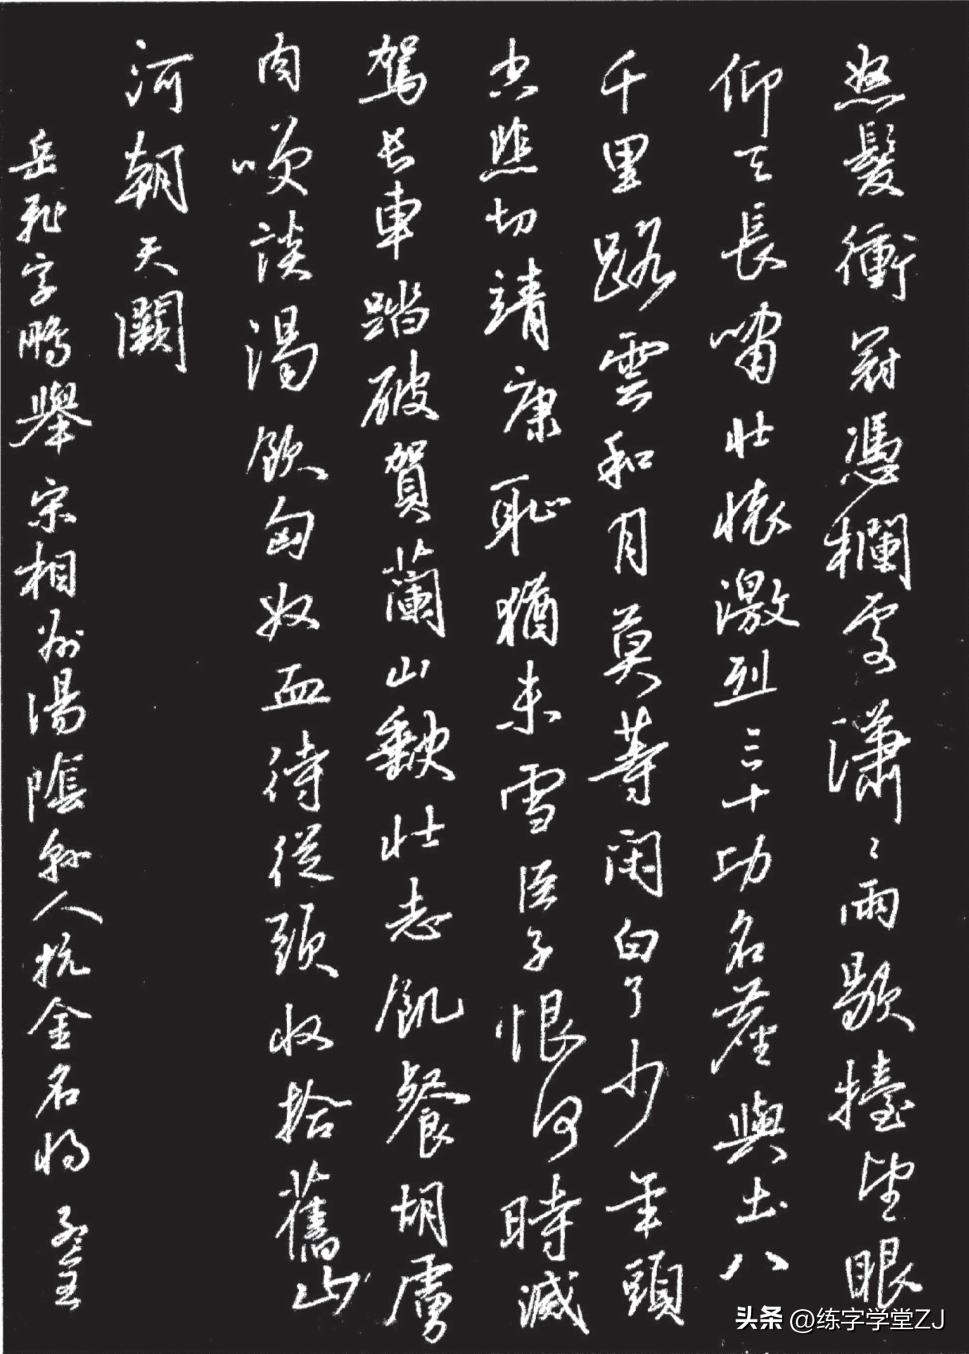 怒髮衝冠憑欄處瀟々雨歇擡望眼
仰天長嘯壯懷激烈三十功名塵與土八
千里路雲和月莫等閑白了少年頭
空悲切靖康恥猶未雪臣子恨何時滅
駕長車踏破賀蘭山缺壯志飢餐胡虜
肉咲談渴飲匈奴血待從頭收拾舊山
河朝天闕
岳飛字鵬舉宋相州湯陰縣人抗金名將
头条 @练字学堂ZJ